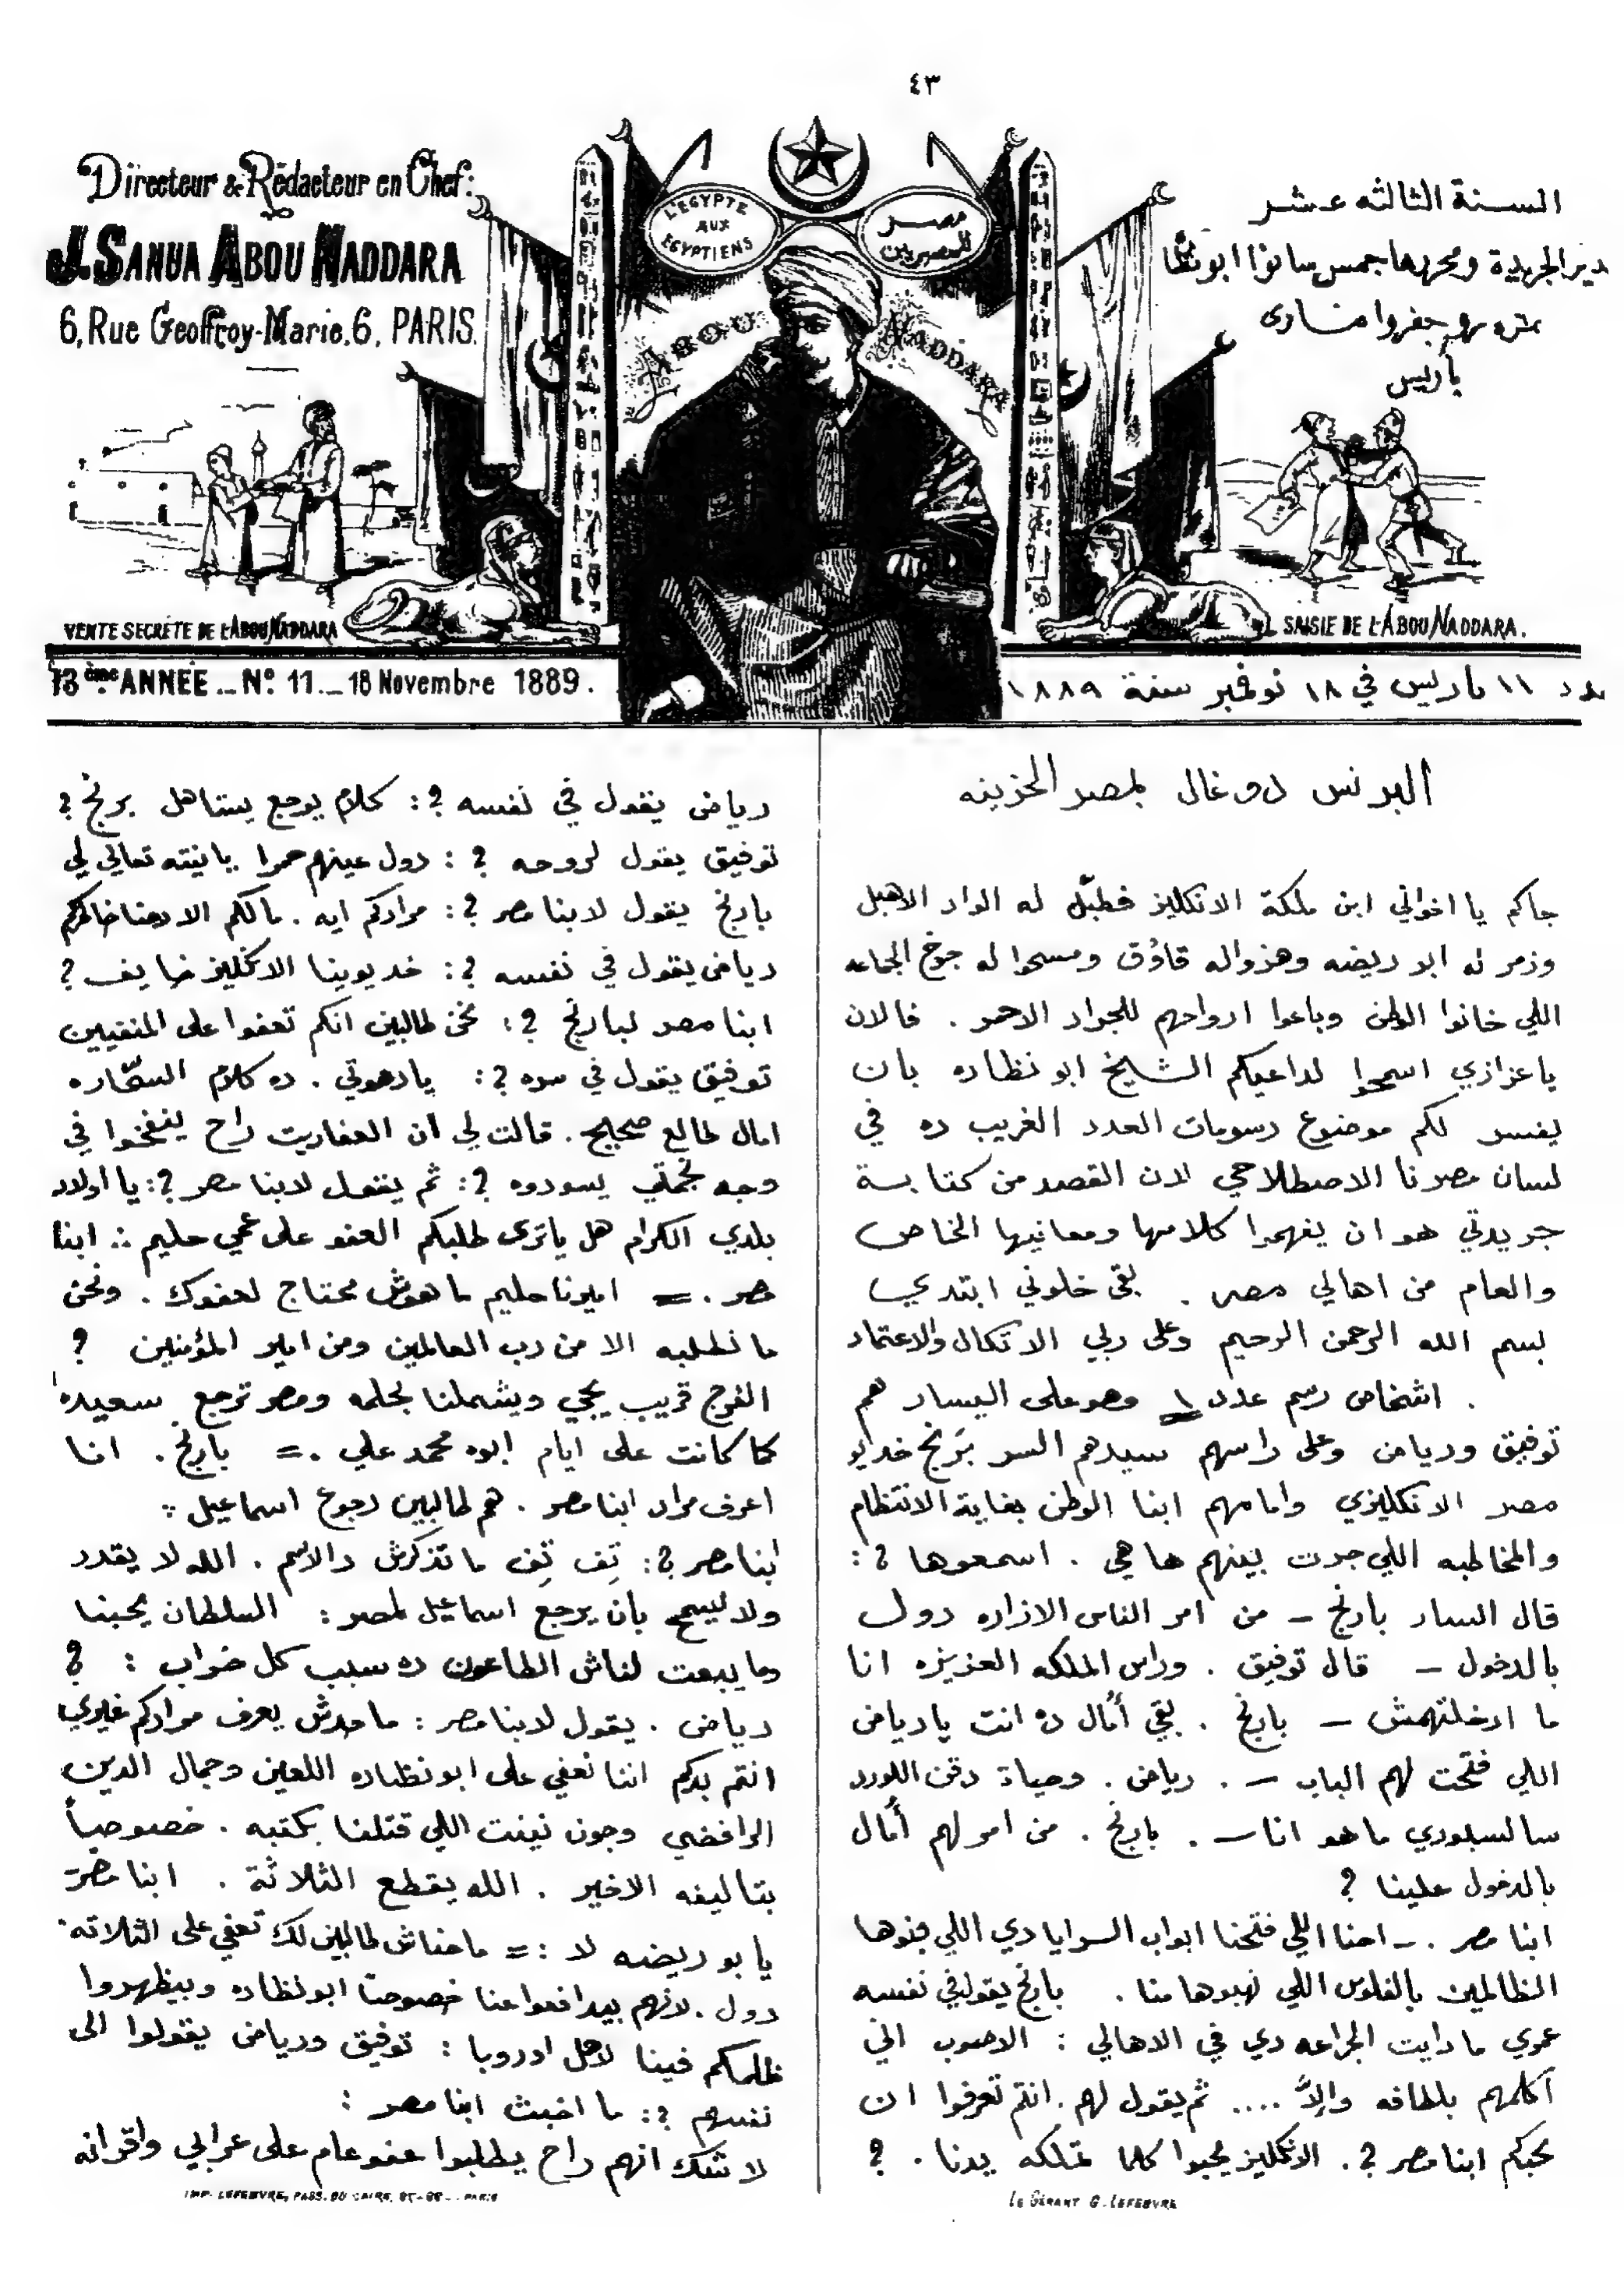 ٤٣
Directeur & Rédacteur en Chef:
J. SANUA ABOU NADDARA
6, Rue Geoffroy-Marie, 6, PARIS.
L'EGYPTE AUX EGYPTIENS
مصر للمصريين
ABOU NADDARA
السنة الثالثه عشر
دير الجريدة ومحررها جمس سانوا ابو نظا
نمره ٦ رو جفروا ماري
باريس
VENTE SECRÈTE DE L'ABOU NADDARA
SAISIE DE L'ABOU NADDARA.
13ème ANNÉE _ No. 11. _ 18 Novembre 1889.
عدد ١١ باريس في ١٨ نوفمبر سنة ١٨٨٩
البرنس دوغال بمصر الحزينه
جاكم يا اخواني ابن ملكة الانكليز فطبّل له الواد الاهبل
وزمر له ابو ريضه وهزواله قاؤق ومسحوا له جوخ الجماعه
اللي خانوا الوطن وباعوا ارواحهم للجواد الاحمر . فالان
ياعزازي اسمحوا لداعيكم الشيخ ابو نظاره بان
يفسر لكم موضوع رسومات العدد الغريب ده في
لسان مصرنا الاصطلاحي لان القصد من كتابة
جريدتي هو ان يفهموا كلامها ومعانيها الخاص
والعام من اهالي مصر . بقى خلوني ابتدي
بسم الله الرحمن الرحيم وعلى ربي الاتكال والاعتماد
. اشخاص رسم عدد ١ وهو على اليسار هم
توفيق ورياض وعلى راسهم سيدهم السر بَرنج خديو
مصر الانكليزي وامامهم ابنا الوطن بغاية الانتظام
والمخاطبه اللي جرت بينهم ها هي . اسمعوها ? :
قال السار بارنج – من امر الناس الازاره دول
بالدخول – قال توفيق . وراس الملكه العزيزه انا
ما ادخلتهمش – بارنج . بقي أمّال ده انت يا رياض
اللي فتحت لهم الباب – . رياض . وحياة دقن اللورد
سالسبوري ما هو انا – . بارنج . من امر لهم أمّال
بالدخول علينا ?
ابنا مصر . – احنا اللي فتحنا ابواب السرايا دي اللي بنوها
الظالمين بالفلوس اللي نهبوها منا . بارنج يقول في نفسه
عمري ما رايت الجراعه دي في الاهالي : الاصوب اني
آكلمهم بلطافه وإلاّ .... ثم يقول لهم . انتم تعرفوا ان
نحبكم ابنا مصر ? . الانكليز يحبوا كلما تملكه يدنا . ?
رياض يقول في نفسه ? : كلام يوجع يستاهل برنج ?
توفيق يقول لروحه ? : دول عينهم حمرا يا نينته تعالي لي
بارنج يقول لابنا مصر ? : مرادكم ايه . مالكم الا دحنا خاطركم
رياض يقول في نفسه ? : خديوينا الانكليز خايف ?
ابنا مصر لبارنج ? : نحن طالبين انكم تعفوا على المنفيين
توفيق يقول في سره ? : يا دهوتي . ده كلام السحّاره
امال طالع صحيح . قالت لي ان العفاريت راح ينفخوا في
وجه نجمتي يسودوه ? : ثم يقول لابنا مصر ? : يا اولاد
بلدي الكرام هل ياترى طلبكم العفو على عمي حليم : . ابنا
مصر . = اميرنا حليم ما هوش محتاج لعفوك . ونحن
ما نطلبه الا من رب العالمين ومن امير المؤمنين ?
الفرج قريب يجي ويشملنا بحلمه ومصر ترجع سعيده
كما كانت على ايام ابوه محمد علي . = بارنج . انا
اعرف مراد ابنا مصر . هم طالبين رجوع اسماعيل :
ابنا مصر ? : تِف تِف ما تذكرش دالاسم . الله لا يقدر
ولا يسمح بان يرجع اسماعيل لمصر : السلطان يحبنا
وما يبعت لناش الطاعون ده سبب كل خراب : ?
رياض . يقول لابنا مصر : ما حدش يعرف مرادكم غيري
انتم بدكم اننا نعفي على ابو نظاره اللعين وجمال الدين
الرافضي وجون نينت اللي قتلنا بكتبه . خصوصاً
بتاليفه الاخير . الله يقطع الثلاثة . ابنا مصر
يا بو ريضه لا : = ما حناش طالبين لك تعفي على الثلاثه
دول . لانهم بيدافعوا عنا خصوصاً ابو نظاره وبيظهروا
ظلمكم فينا لاهل اوروبا : توفيق ورياض يقولوا الى
نفسهم ? : ما اخبث ابنا مصر :
لا شك انهم راح يطلبوا عفو عام على عرابي واقرانه
IMP. LEFEBVRE, PASS. DU CAIRE, PARIS
LE GÉRANT G. LEFEBVRE